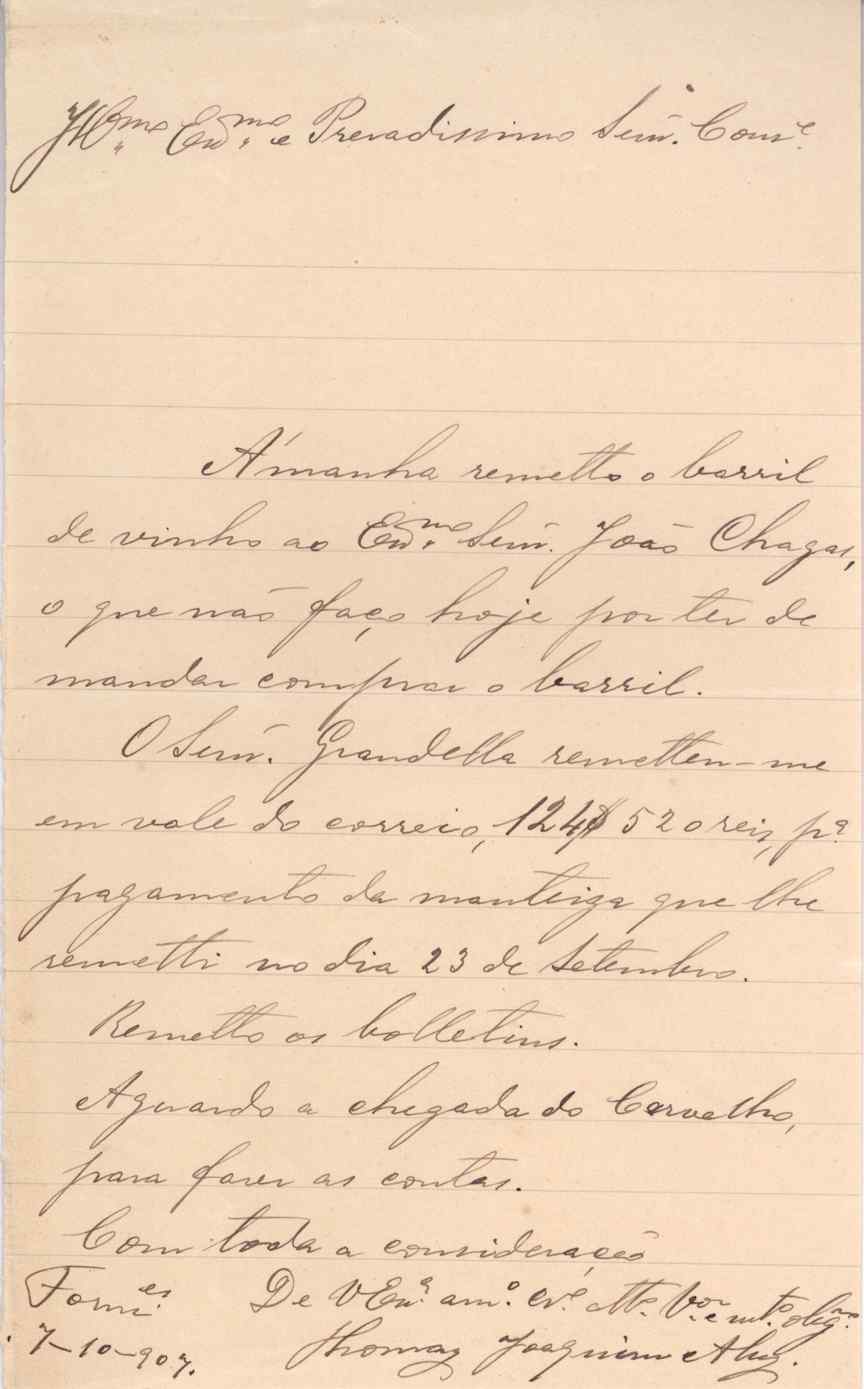 Illmo Exmo e Presadissimo Senr. Conse.
A'manha remetto o barril
de vinho ao Exmo. Senr. João Chagas,
o que não faço hoje por ter de
mandar comprar o barril.
O Senr. Grandella remetteu-me
em vale do correio, 124$520 reis, pa.
pagamento da manteiga que lhe
remetti no dia 23 de Setembro.
Remetto os bolletins.
Aguardo a chegada do Carvalho,
para fazer as contas.
Com toda a consideração
De V Exa. amo. cro. atto. vor. e mto. obrigmo.
7-10-907.
Thomaz Joaquim Alvz.